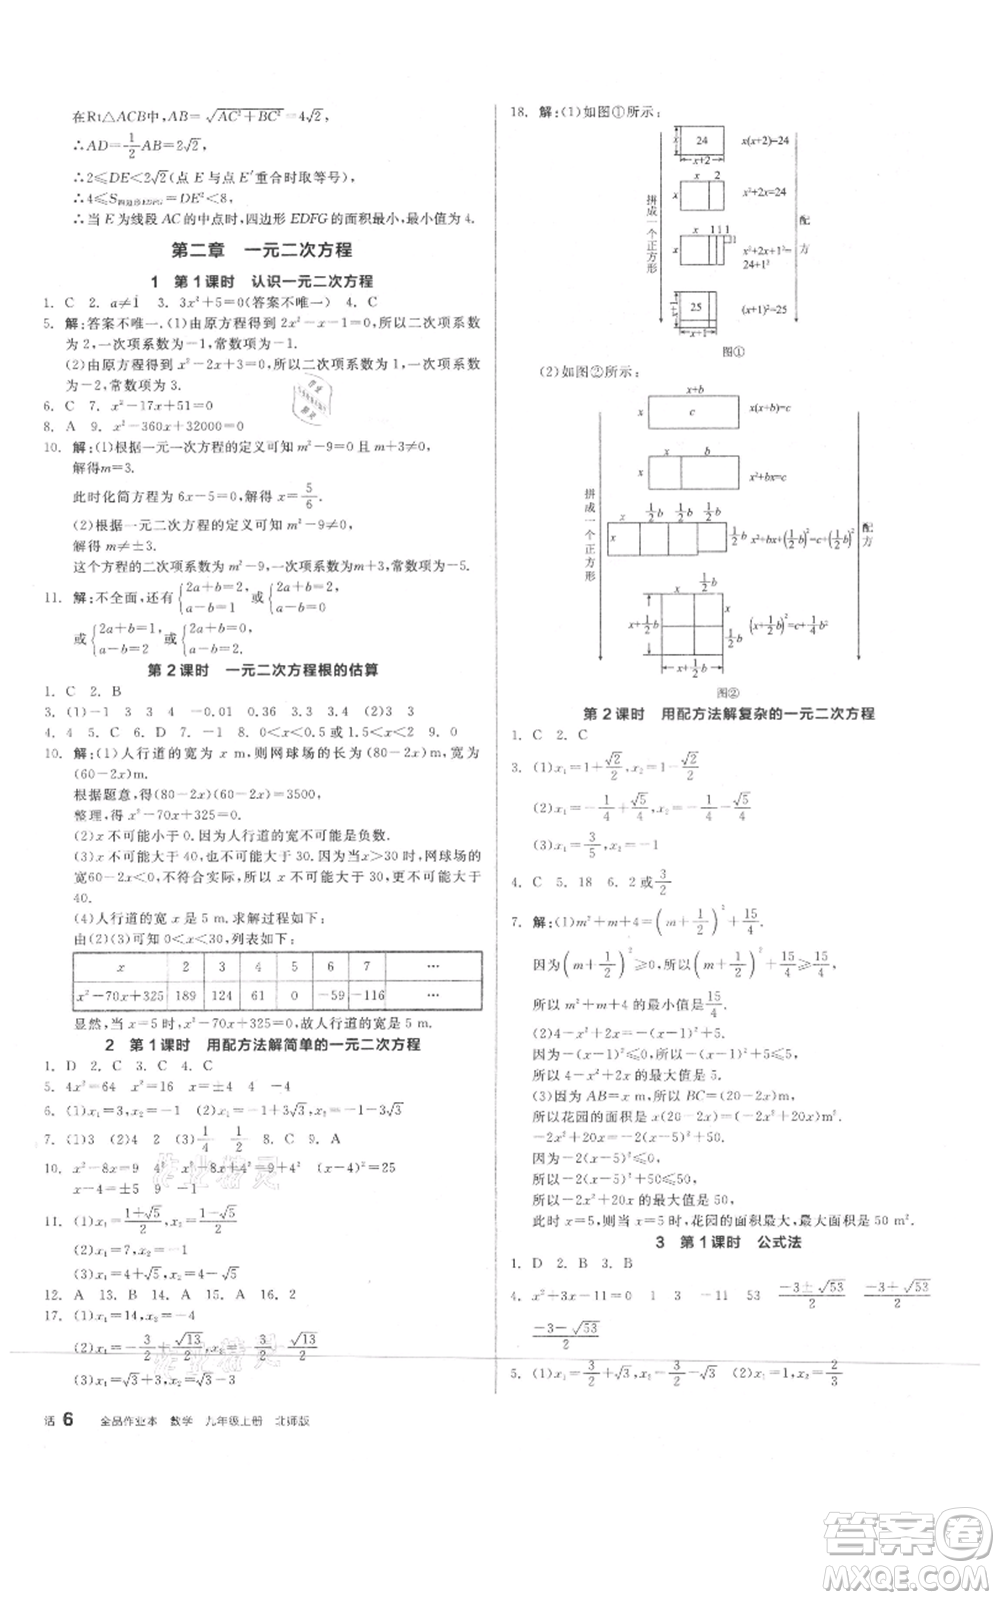 在Rt△ACB中,AB=√(AC²+BC²)=4√2,
∴AD=1/2AB=2√2,
∴2≤DE<2√2(点 E 与点 E′重合时取等号),
∴4≤S四边形EDFG=DE²<8,
∴当 E 为线段 AC 的中点时,四边形 EDFG 的面积最小,最小值为 4.
第二章 一元二次方程
1 第1课时 认识一元二次方程
1. C 2. a≠1 3. 3x²+5=0(答案不唯一) 4. C
5. 解:答案不唯一.(1)由原方程得到 2x²-x-1=0,所以二次项系数
为 2,一次项系数为-1,常数项为-1.
(2)由原方程得到 x²-2x+3=0,所以二次项系数为 1,一次项系数
为-2,常数项为 3.
6. C 7. x²-17x+51=0
8. A 9. x²-360x+32000=0
10. 解:(1)根据一元一次方程的定义可知 m²-9=0 且 m+3≠0,
解得m=3.
此时化简方程为 6x-5=0,解得 x=5/6.
(2)根据一元二次方程的定义可知 m²-9≠0,
解得 m≠±3.
这个方程的二次项系数为 m²-9,一次项系数为 m+3,常数项为-5.
11. 解:不全面,还有{2a+b=2, a-b=1 或{2a+b=2, a-b=0
或{2a+b=1, a-b=2 或{2a+b=0, a-b=2.
第2课时 一元二次方程根的估算
1. C 2. B
3. (1)-1 1 3 4 -0.01 0.36 3.3 3.4 (2)3 3
4. 4 5. C 6. D 7. -1 8. 0<x<0.5或1.5<x<2 9. 0
10. 解:(1)人行道的宽为 x m,则网球场的长为(80-2x)m,宽为
(60-2x)m.
根据题意,得(80-2x)(60-2x)=3500,
整理,得 x²-70x+325=0.
(2)x 不可能小于 0.因为人行道的宽不可能是负数.
(3)x 不可能大于 40,也不可能大于 30.当x>30 时,网球场的
宽60-2x<0,不符合实际,所以x不可能大于 30,更不可能大于
40.
(4)人行道的宽 x 是 5 m.求解过程如下:
由(2)(3)可知 0<x<30,列表如下:
x 2 3 4 5 6 7 …
x²-70x+325 189 124 61 0 -59 -116 …
显然,当 x=5 时,x²-70x+325=0,故人行道的宽为 5 m.
2 第1课时 用配方法解简单的一元二次方程
1. D 2. C 3. C 4. C
5. 4x²=64 x²=16 x=±4 4 -4
6. (1)x₁=3,x₂=-1 (2)x₁=-1+3√3,x₂=-1-3√3
7. (1)3 (2)4 2 (3)1/4 1/2 8. C 9. A
10. x²-8x=9 4² x²-8x+4²=9+4² (x-4)²=25
x-4=±5 9 -1
11. (1)x₁=(1+√5)/2,x₂=(1-√5)/2
(2)x₁=7,x₂=-1
(3)x₁=4+√5,x₂=4-√5
12. A 13. B 14. A 15. A 16. 2
17. (1)x₁=14,x₂=-4
(2)x₁=-3/2+√13/2,x₂=-3/2-√13/2
(3)x₁=√3+3,x₂=√3-3
活 6 全品作业本 数学 九年级上册 北师版
18. 解:(1)如图①所示:
x 24 x+2 x(x+2)=24
x 2 x²+2x=24
拼成一个正方形
配方
x 1 1 1 1 x²+2x+1=24+1
x+1 25 x+1 (x+1)²=25
图①
(2)如图②所示:
x+b
x c x(x+b)=c
x b
x x²+bx=c
拼成一个正方形
配方
x 1/2b 1/2b 1/2b 1/2b x²+bx+(1/2b)²=c+(1/2b)²
1/2b x x+1/2b 1/2b (x+1/2b)²=c+1/4b²
x+1/2b
图②
第2课时 用配方法解复杂的一元二次方程
1. C 2. C
3. (1)x₁=1+√2/2,x₂=1-√2/2
(2)x₁=-1/4+√5/4,x₂=-1/4-√5/4
(3)x₁=3/5,x₂=-1
4. C 5. 18 6. 2 或3/2
7. 解:(1)m²+m+4=(m+1/2)²+15/4.
因为(m+1/2)²≥0,所以(m+1/2)²+15/4≥15/4,
所以 m²+m+4 的最小值是15/4.
(2)4-x²+2x=-(x-1)²+5.
因为-(x-1)²≤0,所以-(x-1)²+5≤5,
所以 4-x²+2x 的最大值是 5.
(3)因为 AB=x m,所以 BC=(20-2x)m,
所以花园的面积是 x(20-2x)=(-2x²+20x)m².
-2x²+20x=-2(x-5)²+50.
因为-2(x-5)²≤0,
所以-2(x-5)²+50≤50,
所以-2x²+20x 的最大值是 50,
此时 x=5,所以当 x=5 时,花园的面积最大,最大面积是 50 m².
3 第1课时 公式法
1. D 2. B 3. B
4. x²+3x-11=0 1 3 -11 53 (-3±√53)/2 (-3+√53)/2
(-3-√53)/2
5. (1)x₁=3/2+√3,x₂=3/2-√3 (2)x₁=-1/2,x₂=2/3
作业精灵
答案卷